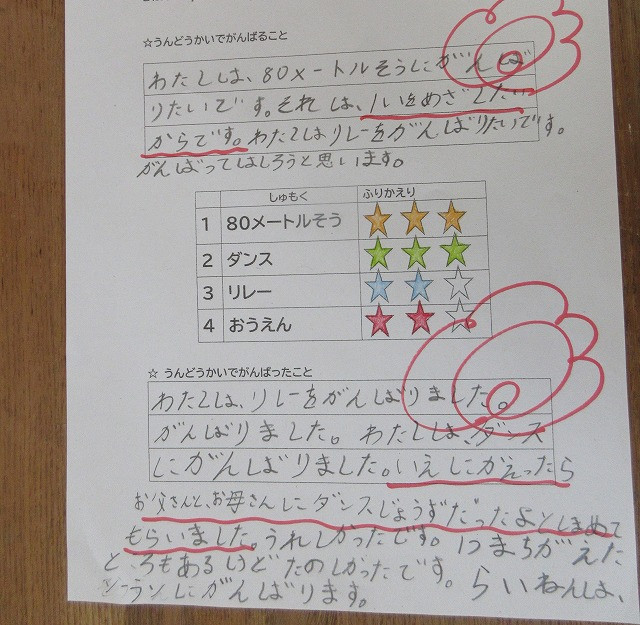 ☆うんどうかいでがんばること
わたしは、80メートルそうにがんば
りたいです。それは、1いをめざしたい
からです。わたしはリレーをがんばりたいです。
がんばってはしろうと思います。
しゅもく ふりかえり
1 80メートルそう
2 ダンス
3 リレー
4 おうえん
☆ うんどうかいでがんばったこと
わたしは、リレーをがんばりました。
がんばりました。わたしは、ダンス
にがんばりました。いえにかえったら
お父さんと、お母さんにダンスじょうずだったよとほめて
もらいました。うれしかったです。1つまちがえた
ところもあるけどたのしかったです。らいねんは、
がんばります。